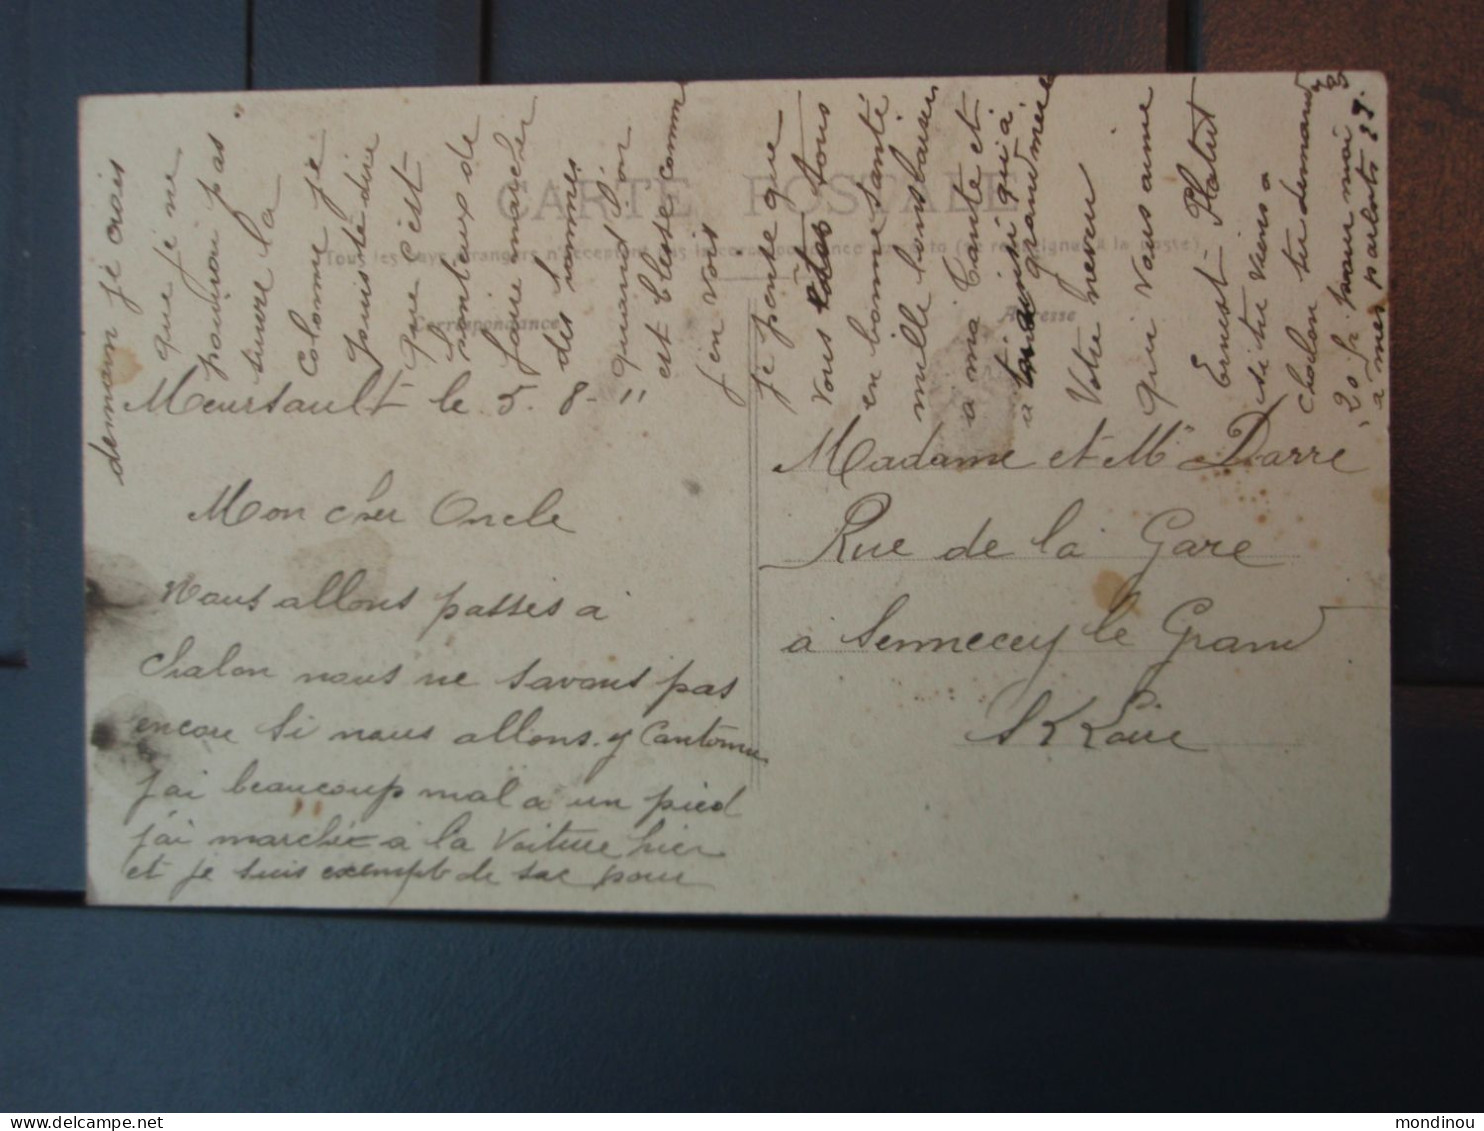 CARTE POSTALE
Tous les pays étrangers n'acceptent pas la correspondance au recto (se renseigner à la poste).
Correspondance
Adresse
Meursault le 5. 8. "
Mon cher Oncle
Nous allons passes a
Chalon nous ne savons pas
encore si nous allons y Cantonne
J'ai beaucoup mal a un pied
j'ai marchée a la voiture hier
et je suis exempt de sac pour
demain je crois
que je ne
pourrai pas
suivre la
colonne je
puis te dire
que c'est
honteux de
faire marcher
des hommes
quand l'on
est blessé comme
j'en vois
je pense que
vous êtes tous
en bonne santé
mille bons baisers
a ma Tante et
a grand mère
Votre neveu
qui vous aime
Ernest Platret
si tu viens a
Chalon tu demand
20 fr pour moi
a mes parents
Madame et Mr Darre
Rue de la Gare
à Sennecey le Grand
S K Loire
mondinou